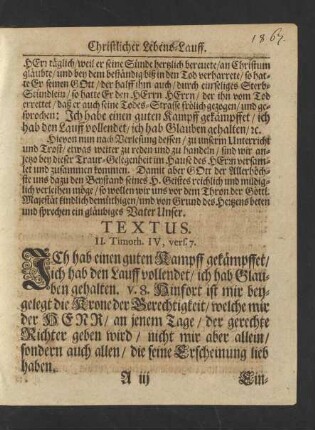 Christlicher Lebens-Lauff.
1867.
HErn täglich/weil er seine Sünde hertzlich bereuete/an Christum
gläubte/und bey dem beständig biß in den Tod verharrete/ so hat-
te Er seinen GOtt/ der halff ihm auch/durch ein seliges Sterb-
Stündlein/ so hatte Er den HErrn HErrn/ der ihn vom Tod
errettet/ daß er auch seine Todes-Strasse frölich gezogen/ und ge-
sprochen: Ich habe einen guten Kampff gekämpffet/ ich
hab den Lauff vollendet/ich hab Glauben gehalten/ꝛc.
Hievon nun nach Verlesung dessen/ zu unserm Unterricht
und Trost/ etwas weiter zu reden und zu handeln/ sind wir an-
jetzo bey dieser Traur-Gelegenheit im Hause des HErrn versam-
let und zusammen kommen. Damit aber GOtt der Allerhöch-
ste uns dazu den Beystand seines H. Geistes reichlich und mildig-
lich verleihen möge/ so wollen wir uns vor dem Thron der Göttl.
Majestät kindlich demüthigen/und von Grund des Hertzens beten
und sprechen ein gläubiges Vater Unser.
TEXTUS.
II. Timoth. IV, vers. 7.
ICh hab einen guten Kampff gekämpffet/
ich hab den Lauff vollendet/ ich hab Glau-
ben gehalten. v. 8. Hinfort ist mir bey-
gelegt die Krone der Gerechtigkeit/ welche mir
der HERR/ an jenem Tage/ der gerechte
Richter geben wird/ nicht mir aber allein/
sondern auch allen/ die seine Erscheinung lieb
haben.
A iij Ein-